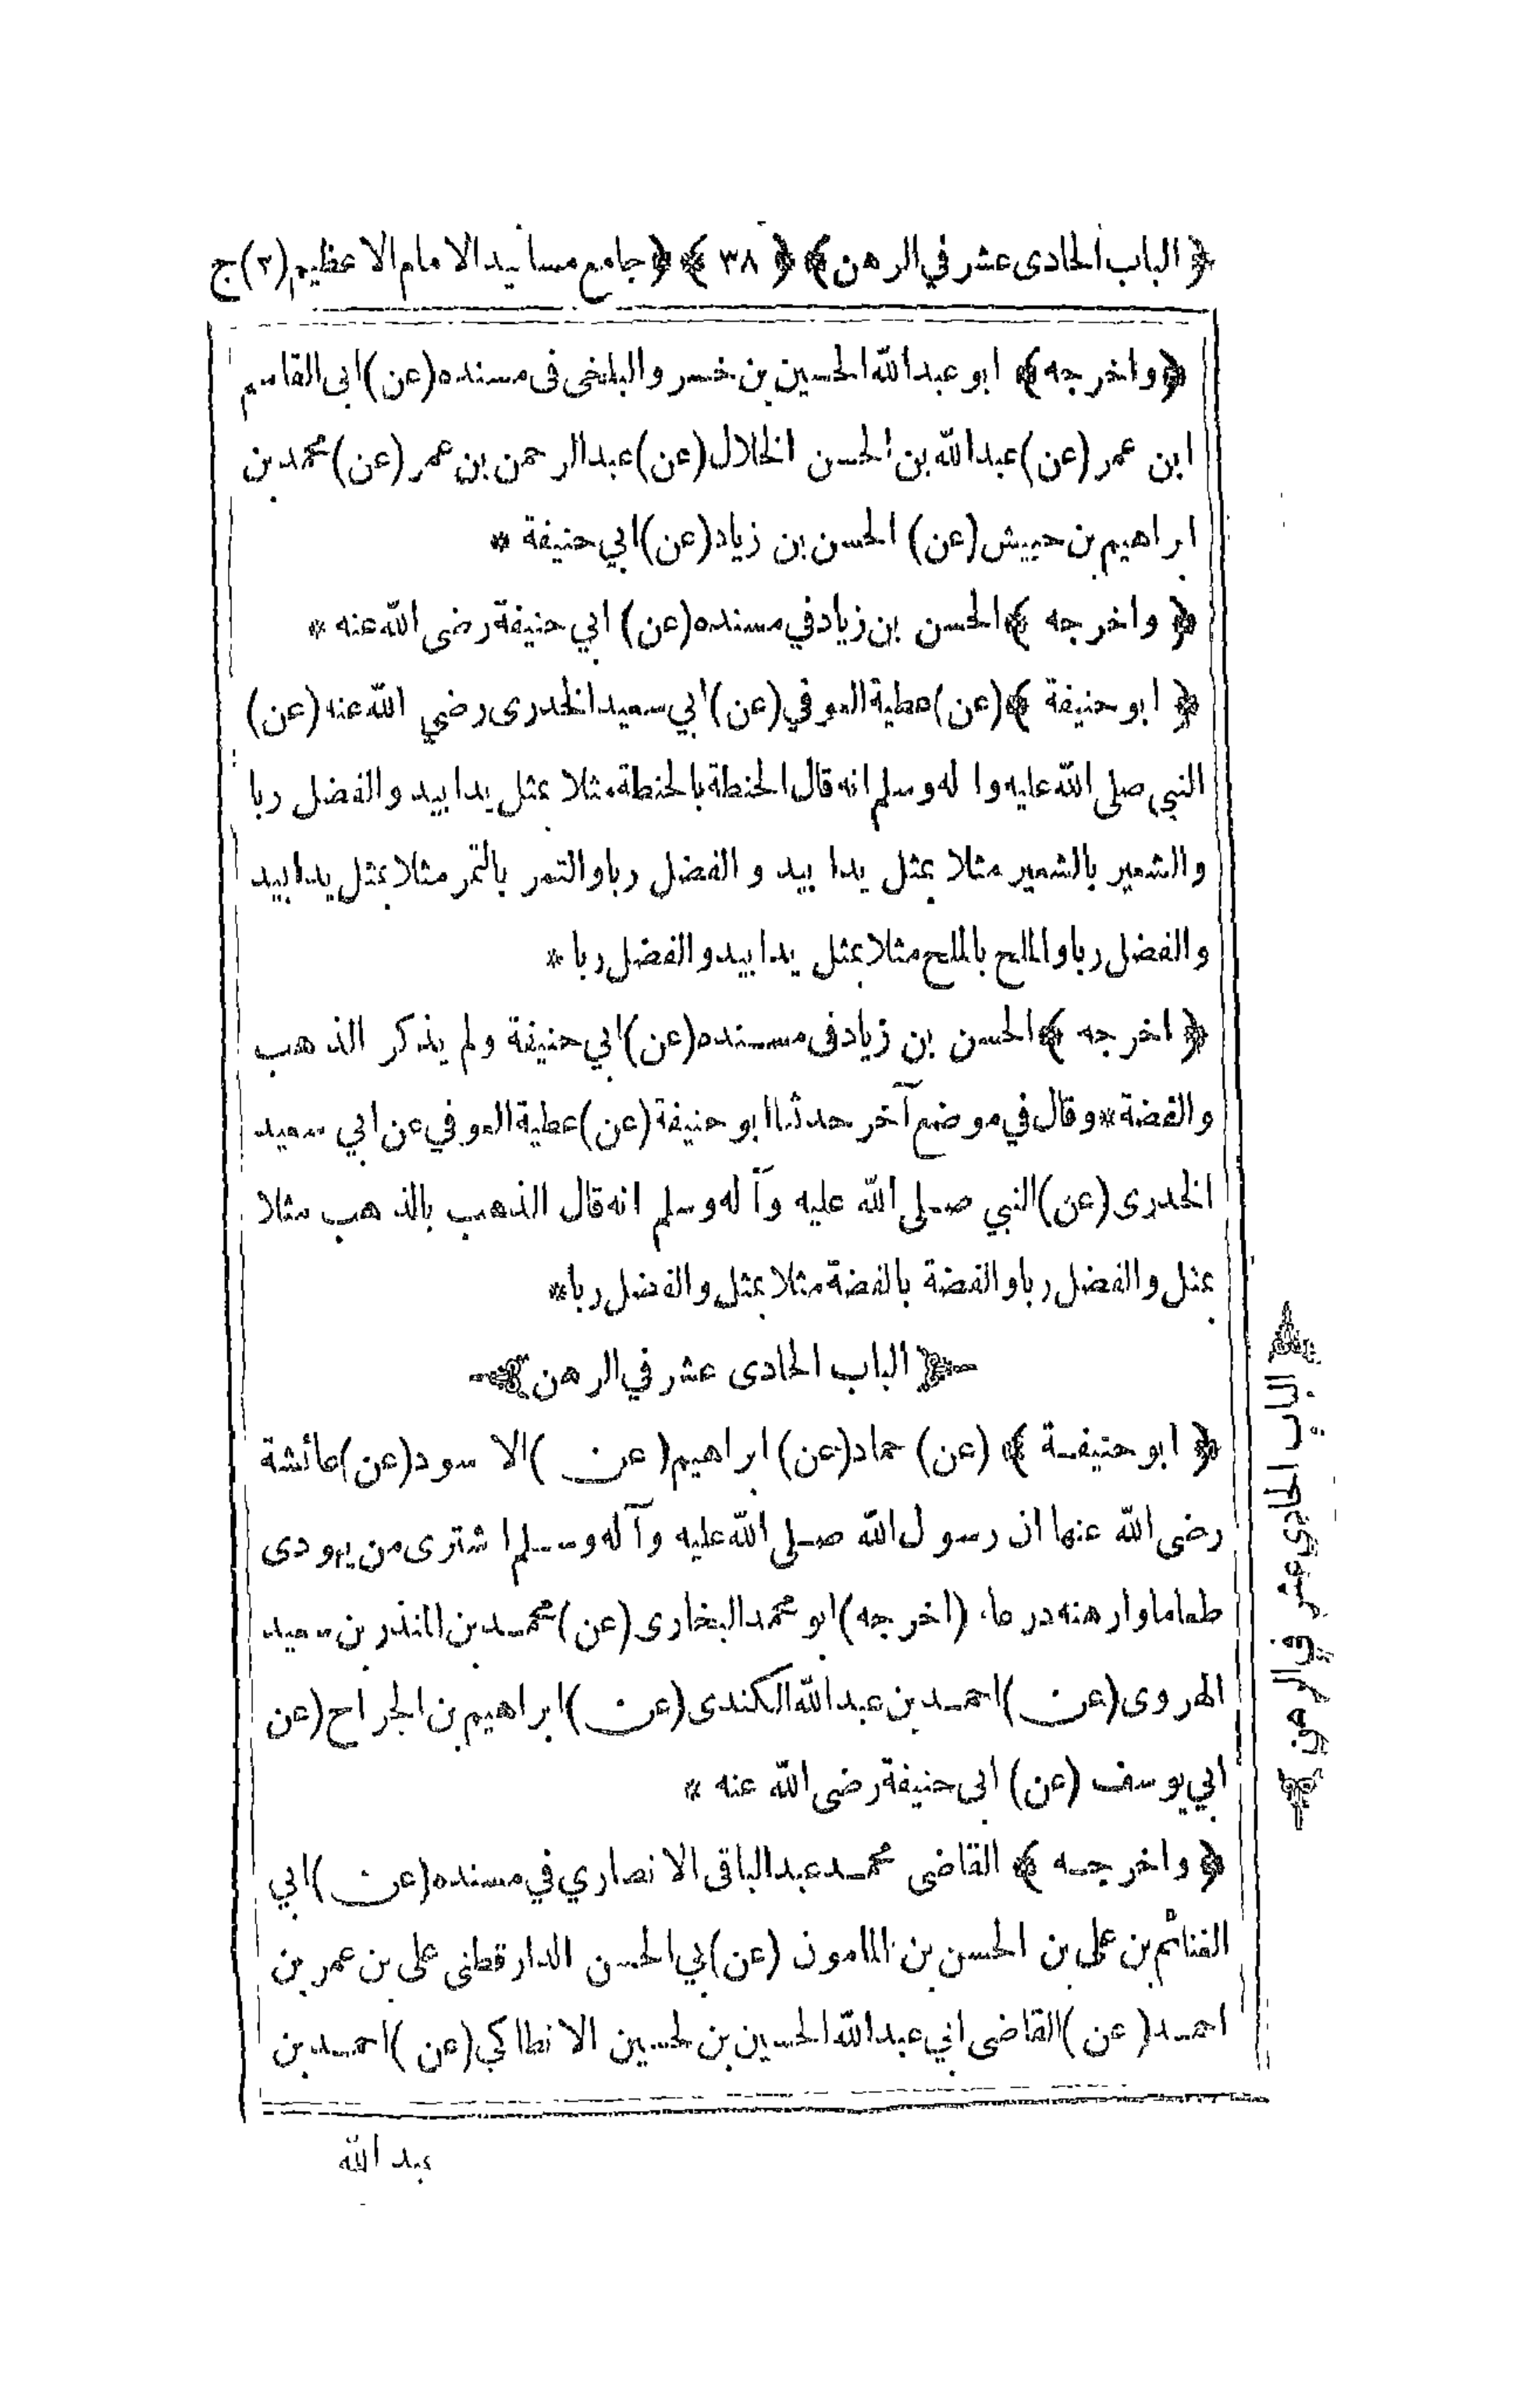 ﴿ الباب الحادى عشر في الرهن ﴾ ﴿ ٣٨ ﴾ ﴿ جامع مسانيد الامام الاعظم (٢) ج
﴿ واخرجه ﴾ ابو عبد الله الحسين بن خسرو البلخى فى مسنده (عن) ابى القاسم
ابن عمر (عن) عبد الله بن الحسن الخلال (عن) عبد الرحمن بن عمر (عن) محمد بن
ابراهيم بن حبيش (عن) الحسن بن زياد (عن) ابي حنيفة *
﴿ واخرجه ﴾ الحسن بن زياد في مسنده (عن) ابي حنيفة رضى الله عنه *
﴿ ابو حنيفة ﴾ (عن) عطية العوفي (عن) ابي سعيد الخدرى رضي الله عنه (عن)
النبي صلى الله عليه واله وسلم انه قال الحنطة بالحنطة مثلا بمثل يدا بيد والفضل ربا
والشعير بالشعير مثلا بمثل يدا بيد والفضل ربا والتمر بالتمر مثلا بمثل يدا بيد
والفضل ربا والملح بالملح مثلا بمثل يدا بيد والفضل ربا *
﴿ اخرجه ﴾ الحسن بن زياد فى مسنده (عن) ابي حنيفة ولم يذكر الذهب
والفضة * وقال في موضع آخر حدثنا ابو حنيفة (عن) عطية العوفي عن ابي سعيد
الخدرى (عن) النبي صلى الله عليه وآله وسلم انه قال الذهب بالذهب مثلا
بمثل والفضل ربا والفضة بالفضة مثلا بمثل والفضل ربا *
﴿ الباب الحادى عشر في الرهن ﴾
﴿ ابو حنيفة ﴾ (عن) حماد (عن) ابراهيم (عن) الاسود (عن) عائشة
رضى الله عنها ان رسول الله صلى الله عليه وآله وسلم اشترى من يهودى
طعاما وارهنه درعا، (اخرجه) ابو محمد البخارى (عن) محمد بن المنذر بن سعيد
الهروى (عن) احمد بن عبد الله الكندى (عن) ابراهيم بن الجراح (عن
ابي يوسف (عن) ابى حنيفة رضى الله عنه *
﴿ واخرجه ﴾ القاضى محمد عبد الباقى الانصاري في مسنده (عن) ابي
الغنائم بن على بن الحسن بن المامون (عن) بي الحسن الدارقطنى على بن عمر بن
احمد (عن) القاضى ابي عبد الله الحسين بن لحسين الانطاكي (عن) احمد بن
عبد الله
﴿ الباب الحادي عشر في الرهن ﴾